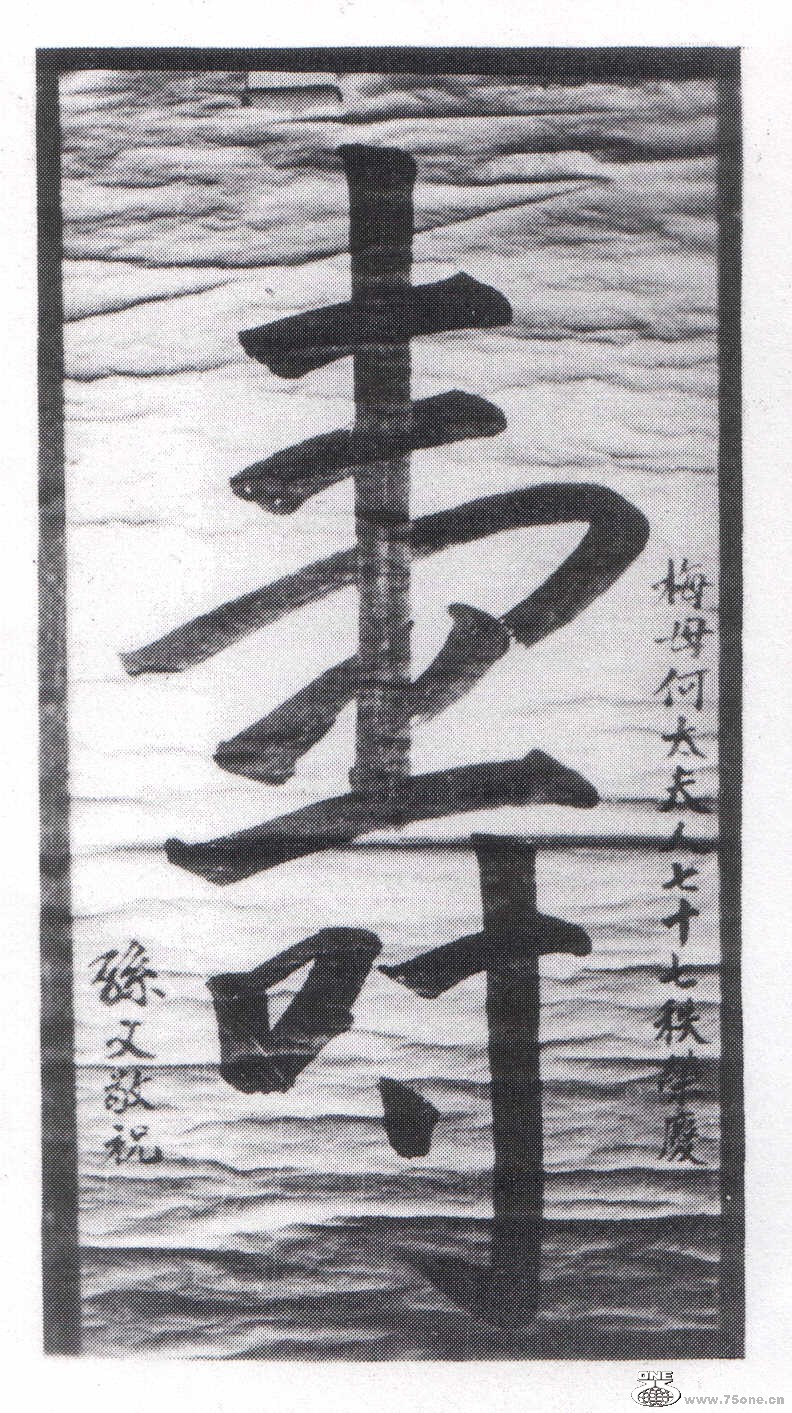 梅母何太夫人七十七秩榮慶
壽
孫文敬祝
ONE
www.75one.cn